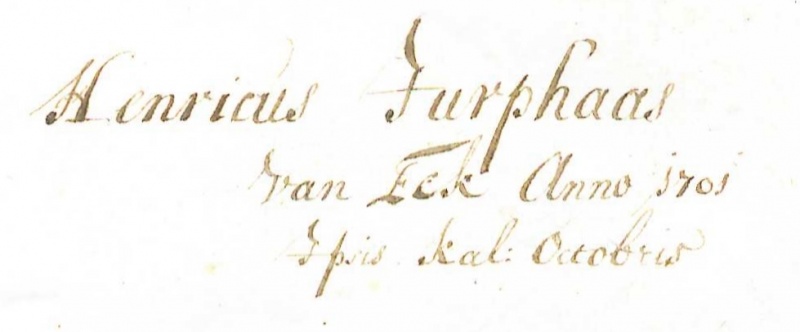 Henricus Jurphaas
van Eck Anno 1701
Ipsis Kal: Octobris